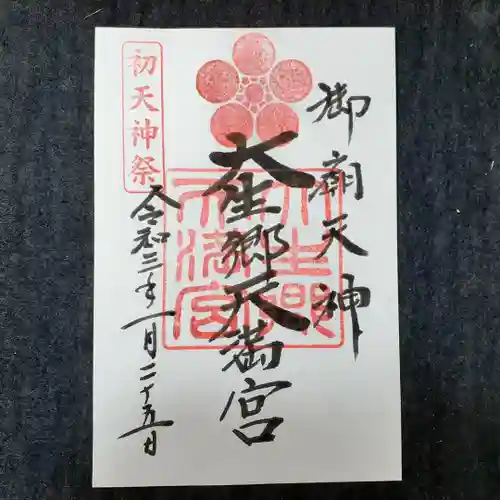 御廟天神
大生郷天満宮
初天神祭
令和三年一月二十五日